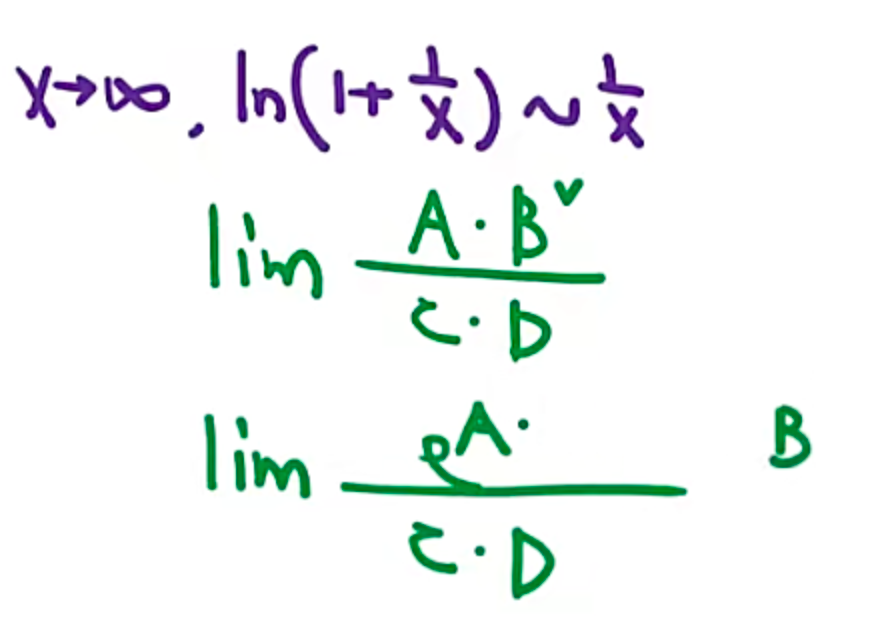 x→∞, ln(1+1/x) ~ 1/x
lim (A·B^v)/(C·D)
lim (e^A·)/(C·D) B